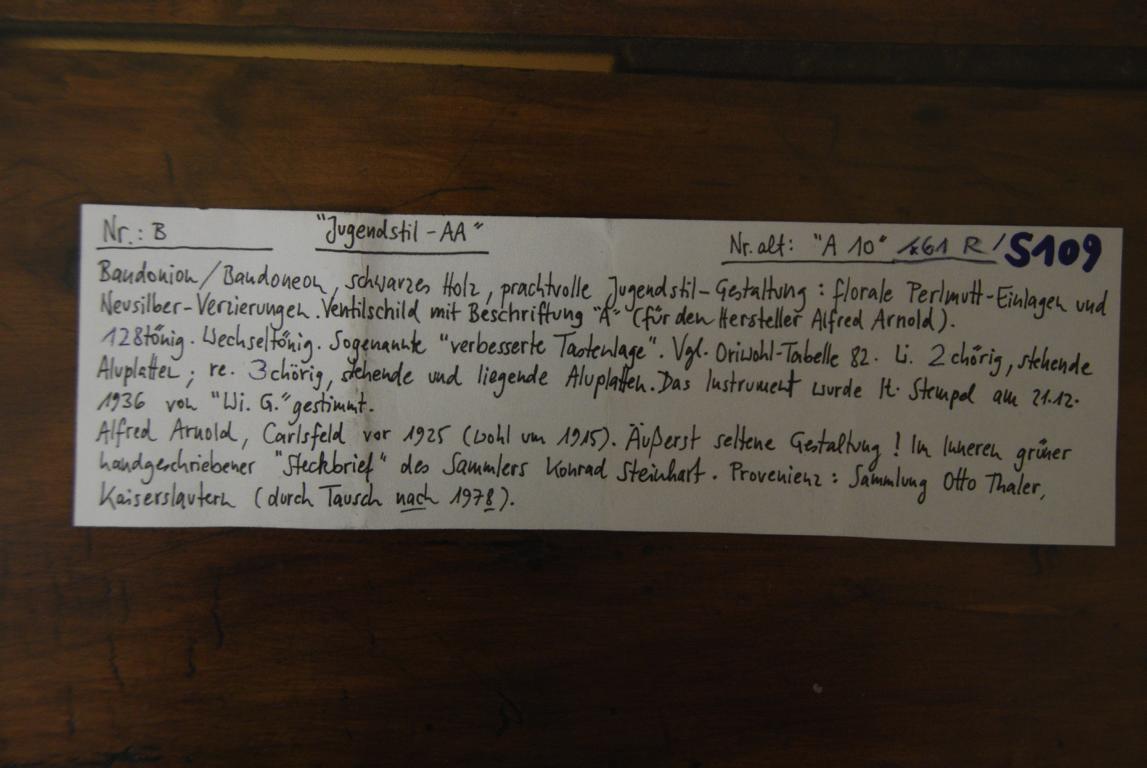 Nr.: B "Jugendstil-AA" Nr. alt: "A 10" 161 R / S109
Bandonion/Bandoneon, schwarzes Holz, prachtvolle Jugendstil-Gestaltung: florale Perlmutt-Einlagen und
Neusilber-Verzierungen. Ventilschild mit Beschriftung "A" (für den Hersteller Alfred Arnold).
128tönig. Wechseltönig. Sogenannte "verbesserte Tastenlage". Vgl. Oriwohl-Tabelle 82. Li. 2chörig, stehende
Aluplatten; re. 3chörig, stehende und liegende Aluplatten. Das Instrument wurde lt. Stempel am 21.12.
1936 von "Wi. G." gestimmt.
Alfred Arnold, Carlsfeld vor 1925 (wohl um 1915). Äußerst seltene Gestaltung! Im Inneren grüner
handgeschriebener "Steckbrief" des Sammlers Konrad Steinhart. Provenienz: Sammlung Otto Thaler,
Kaiserslautern (durch Tausch nach 1978).